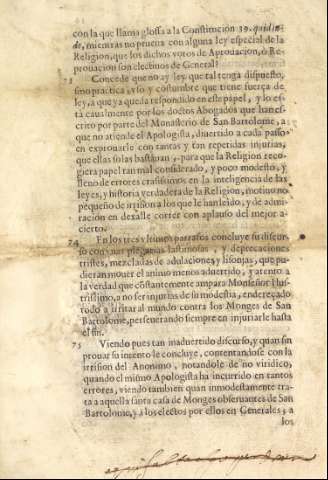 con la que llama glossa a la Constitucion 39. quid in-
de, mientras no prueua con alguna ley especial de la
Religion, que los dichos votos de Aprouacion, ò Re-
prouacion son electiuos de General?
73 Concede que no ay ley que tal tenga dispuesto,
sino practica, vso y costumbre que tiene fuerça de
ley, à que ya queda respondido en este papel, y lo es-
tà causalmente por los doctos Abogados que han es-
crito por parte del Monasterio de San Bartolome, a
que no atiende el Apologista, diuertido a cada passo
en exprouarle con tantas y tan repetidas injurias,
que ellas solas bastauan, para que la Religion reco-
giera papel tan mal considerado, y poco modesto, y
lleno de errores crassissimos en la inteligencia de las
leyes, y historia verdadera de la Religion, motiuo no
pequeño de irrision a los que le han leido, y de admi-
racion en dexalle correr con aplauso del mejor a-
cierto.
74 En los tres vltimos parrafos concluye su discur-
so con vnas plegarias lastimosas, y deprecaciones
tristes, mezcladas de adulaciones y lisonjas, que pu-
dieran mouer el animo menos aduertido, y atento a
la verdad que cõstantemente ampara Monseñor Ilus-
trissimo, a no ser injurias de su modestia, endereçado
todo a irritar al mundo contra los Monges de San
Bartolome, perseuerando siempre en injuriarle hasta
el fin.
75 Viendo pues tan inaduertido discurso, y quan sin
prouar su intento le concluye, contentandose con la
irrision del Anonimo, notandole de no viridico,
quando el mismo Apologista ha incurrido en tantos
errores, viendo tambien quan inmodestamente tra-
ta a aquella santa casa de Monges obseruantes de San
Bartolome, y a los electos por ellos en Generales, a
los